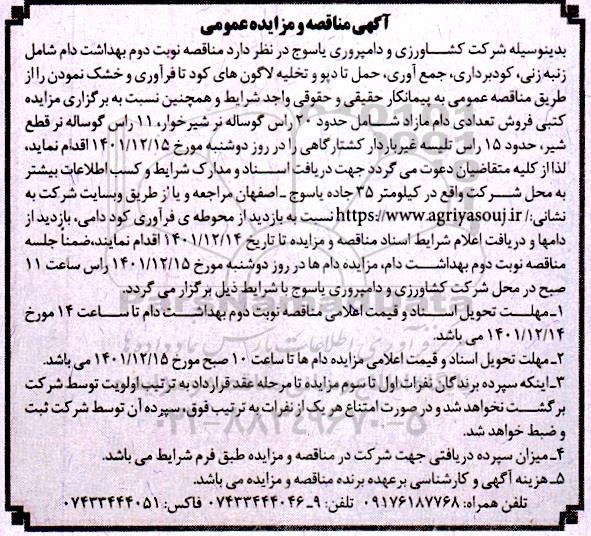 آگهی مناقصه و مزایده عمومی
بدینوسیله شرکت کشاورزی و دامپروری یاسوج در نظر دارد مناقصه نوبت دوم بهداشت دام شامل
زنبه زنی، کودبرداری، جمع آوری، حمل تا دپو و تخلیه لاگون های کود تا فرآوری و خشک نمودن را از
طریق مناقصه عمومی به پیمانکار حقیقی و حقوقی واجد شرایط و همچنین نسبت به برگزاری مزایده
کتبی فروش تعدادی دام مازاد شامل حدود ۲۰ راس گوساله نر شیرخوار، ۱۱ راس گوساله نر قطع
شیر، حدود ۱۵ راس تلیسه غیرباردار کشتارگاهی را در روز دوشنبه مورخ ۱۴۰۱/۱۲/۱۵ اقدام نماید،
لذا از کلیه متقاضیان دعوت می گردد جهت دریافت اسناد و مدارک شرایط و کسب اطلاعات بیشتر
به محل شرکت واقع در کیلومتر ۳۵ جاده یاسوج-اصفهان مراجعه و یا از طریق وبسایت شرکت به
نشانی: https://www.agriyasouj.ir/ نسبت به بازدید از محوطه ی فرآوری کود دامی، بازدید از
دامها و دریافت اعلام شرایط اسناد مناقصه و مزایده تا تاریخ ۱۴۰۱/۱۲/۱۴ اقدام نمایند، ضمناً جلسه
مناقصه نوبت دوم بهداشت دام، مزایده دام ها در روز دوشنبه مورخ ۱۴۰۱/۱۲/۱۵ راس ساعت ۱۱
صبح در محل شرکت کشاورزی و دامپروری یاسوج با شرایط ذیل برگزار می گردد.
۱ـ مهلت تحویل اسناد و قیمت اعلامی مناقصه نوبت دوم بهداشت دام تا ساعت ۱۴ مورخ
۱۴۰۱/۱۲/۱۴ می باشد.
۲ـ مهلت تحویل اسناد و قیمت اعلامی مزایده دام ها تا ساعت ۱۰ صبح مورخ ۱۴۰۱/۱۲/۱۵ می باشد.
۳ـ اینکه سپرده برندگان نفرات اول تا سوم مزایده تا مرحله عقد قرارداد به ترتیب اولویت توسط شرکت
برگشت نخواهد شد و در صورت امتناع هر یک از نفرات به ترتیب فوق، سپرده آن توسط شرکت ثبت
و ضبط خواهد شد.
۴ـ میزان سپرده دریافتی جهت شرکت در مناقصه و مزایده طبق فرم شرایط می باشد.
۵ـ هزینه آگهی و کارشناسی بر عهده برنده مناقصه و مزایده می باشد.
تلفن همراه: ۰۹۱۷۶۱۸۷۷۶۸ تلفن: ۹ـ۰۷۴۳۳۴۴۴۰۴۶ فاکس: ۰۷۴۳۳۴۴۴۰۵۱